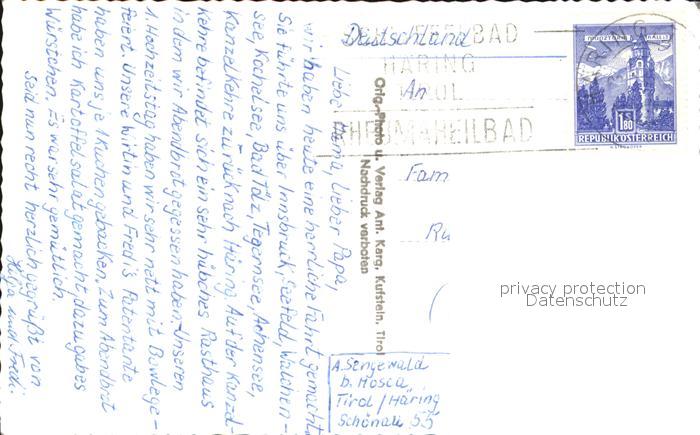 Liebe Mama, lieber Papa,
wir haben heute eine herrliche Fahrt gemacht.
Sie führte uns über Innsbruck, Seefeld, Walchen-
see, Kochelsee, Bad Tölz, Tegernsee, Achensee,
Kanzelkehre zurück nach Häring. Auf der Kanzel-
kehre befindet sich ein sehr hübsches Rasthaus
in dem wir Abendbrot gegessen haben. Unseren
1. Hochzeitstag haben wir sehr nett mit Bowle ge-
feiert. Unsere Wirtin und Fred's Patentante
haben uns je 1 Kuchen gebacken. Zum Abendbrot
habe ich Kartoffelsalat gemacht, dazu gab es
Würstchen. Es war sehr gemütlich.
Seid nun recht herzlich gegrüßt von
und Fredi
Orig. Photo u. Verlag Ant. Karg, Kufstein, Tirol
Nachdruck verboten
Deutschland
An
Fam
HÄRING
TIROL
RHEUMAHEILBAD
1.80
REPUBLIK ÖSTERREICH
privacy protection
Datenschutz
A. Sengewald
b. Hosca
Tirol / Häring
Schönau 55